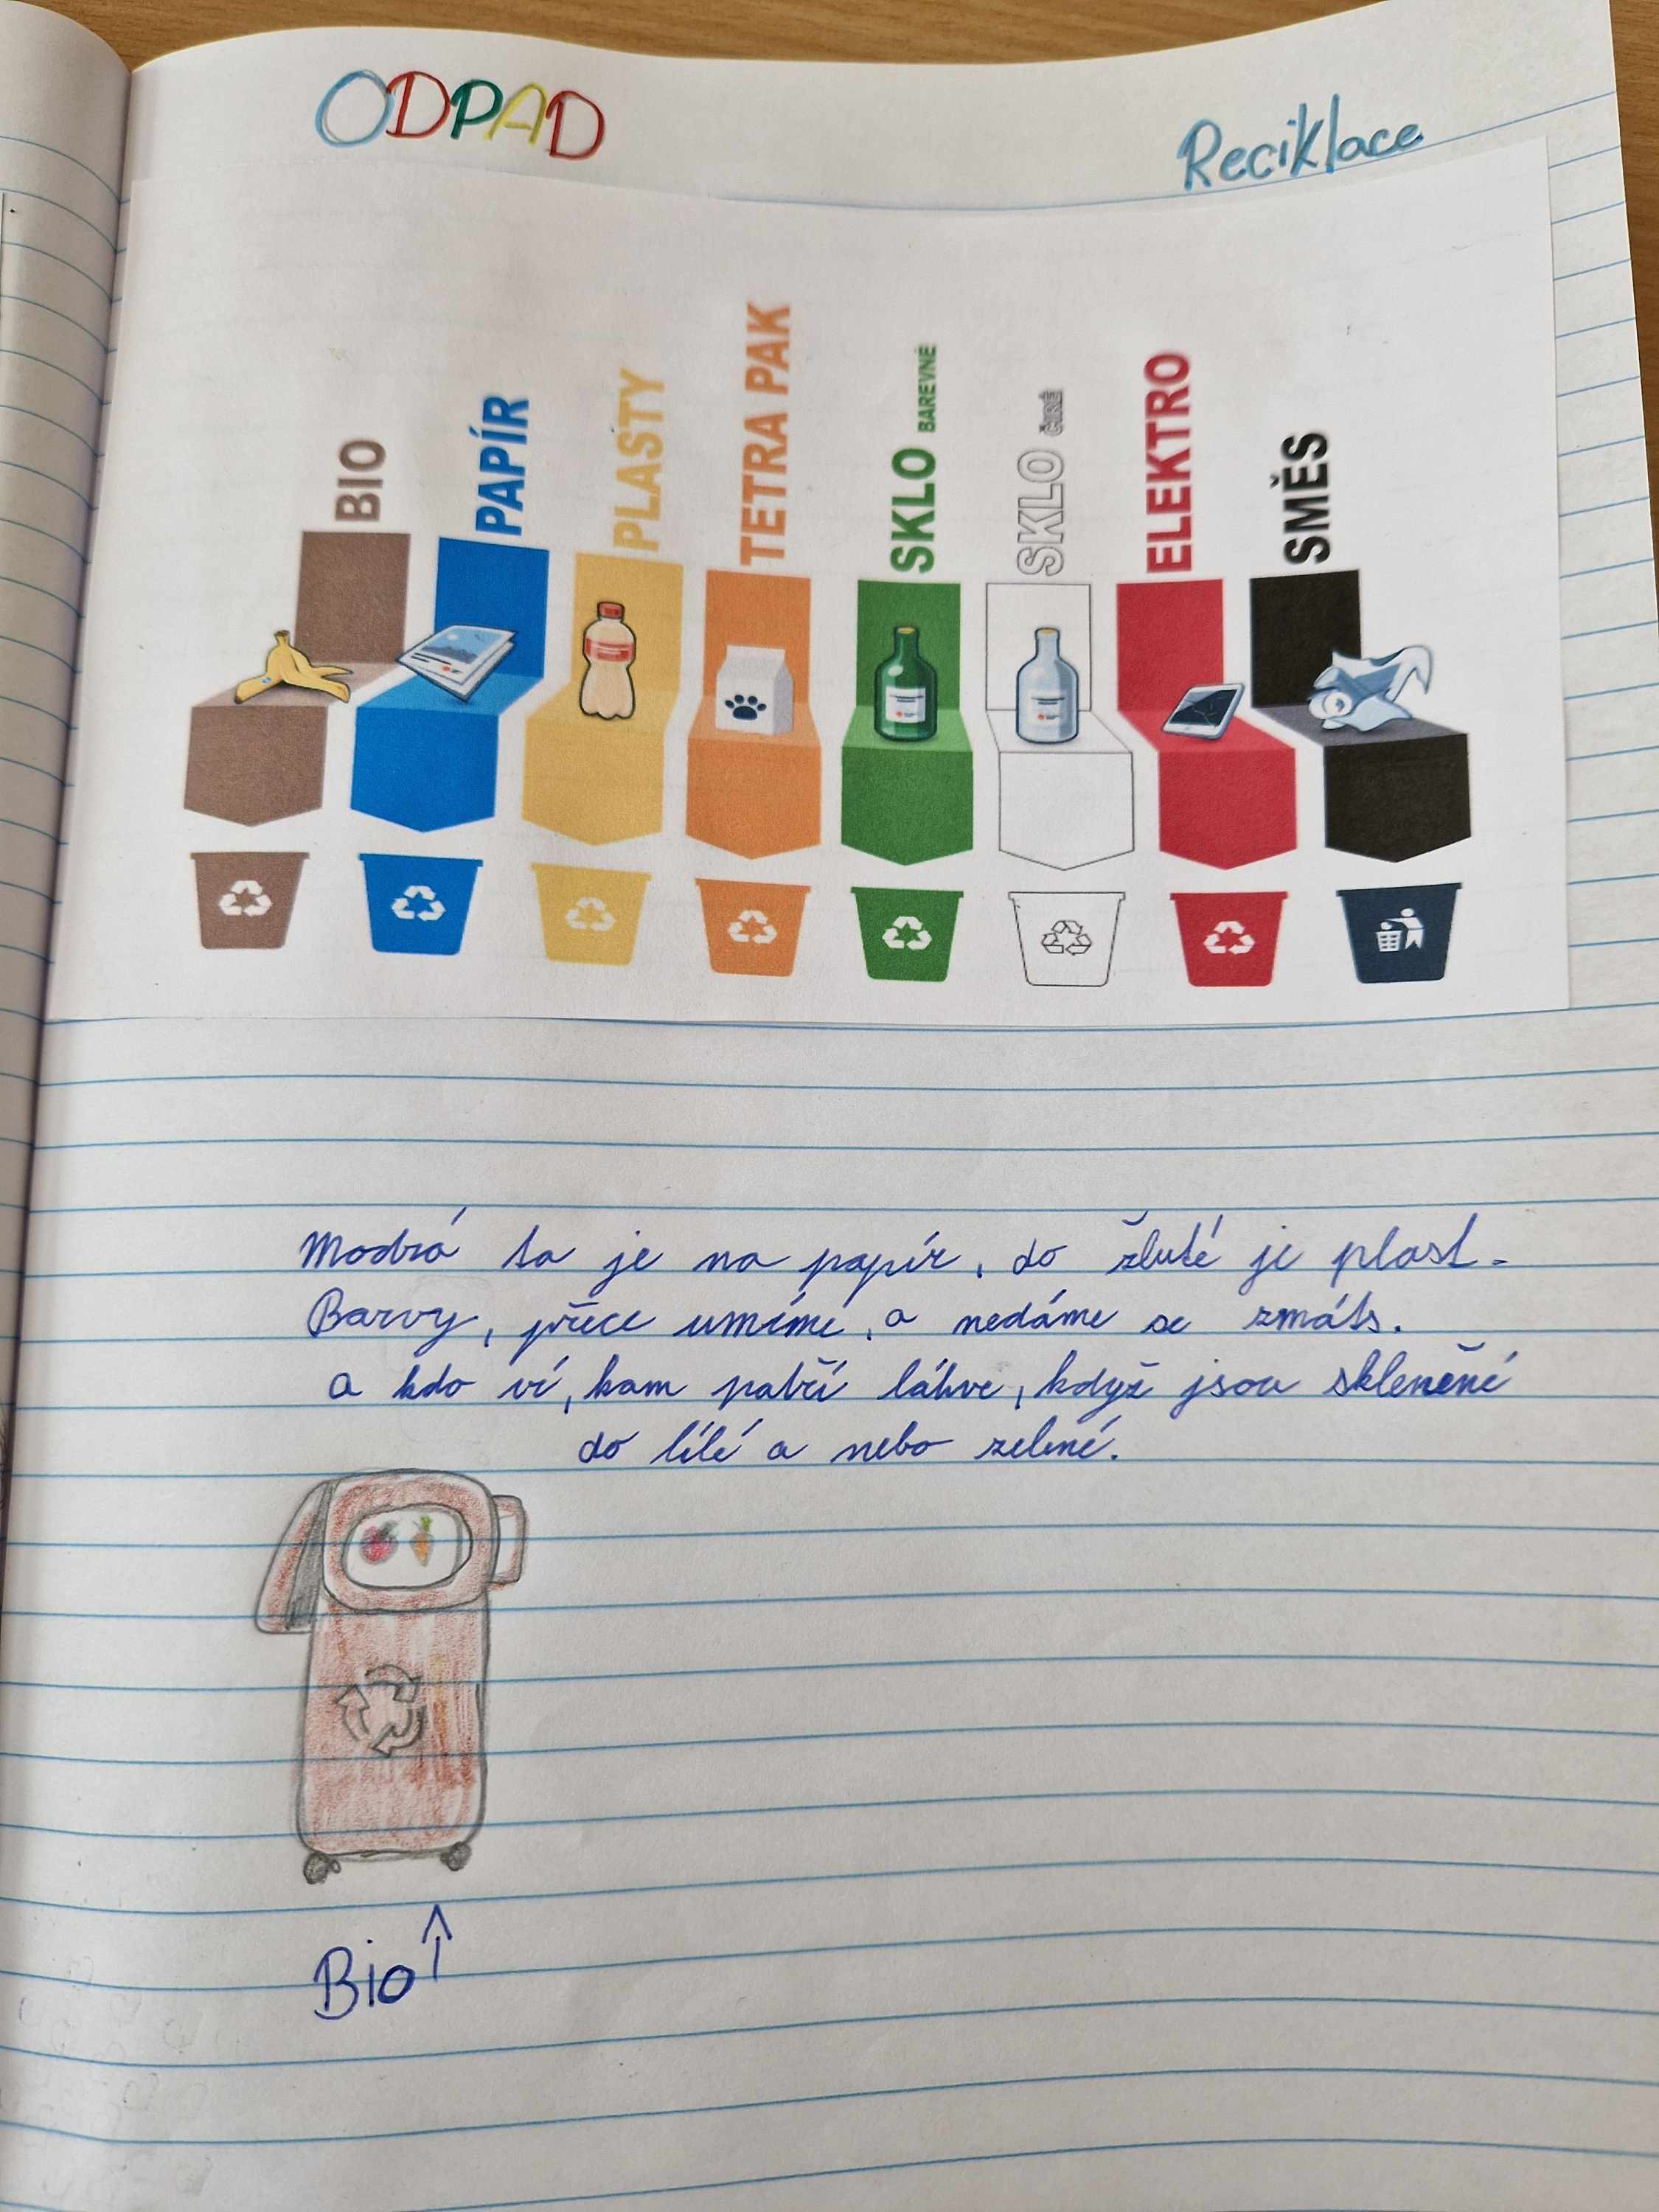 ODPAD
Reciklace
BIO
PAPÍR
PLASTY
TETRA PAK
SKLO BAREVNÉ
SKLO ČIRÉ
ELEKTRO
SMĚS
Modrá ta je na papír, do žluté je plast.
Barvy, přece umíme, a nedáme se zmáts.
a kdo ví, kam patří láhve, když jsou skleněné
do lílé a nebo zelené.
Bio↑